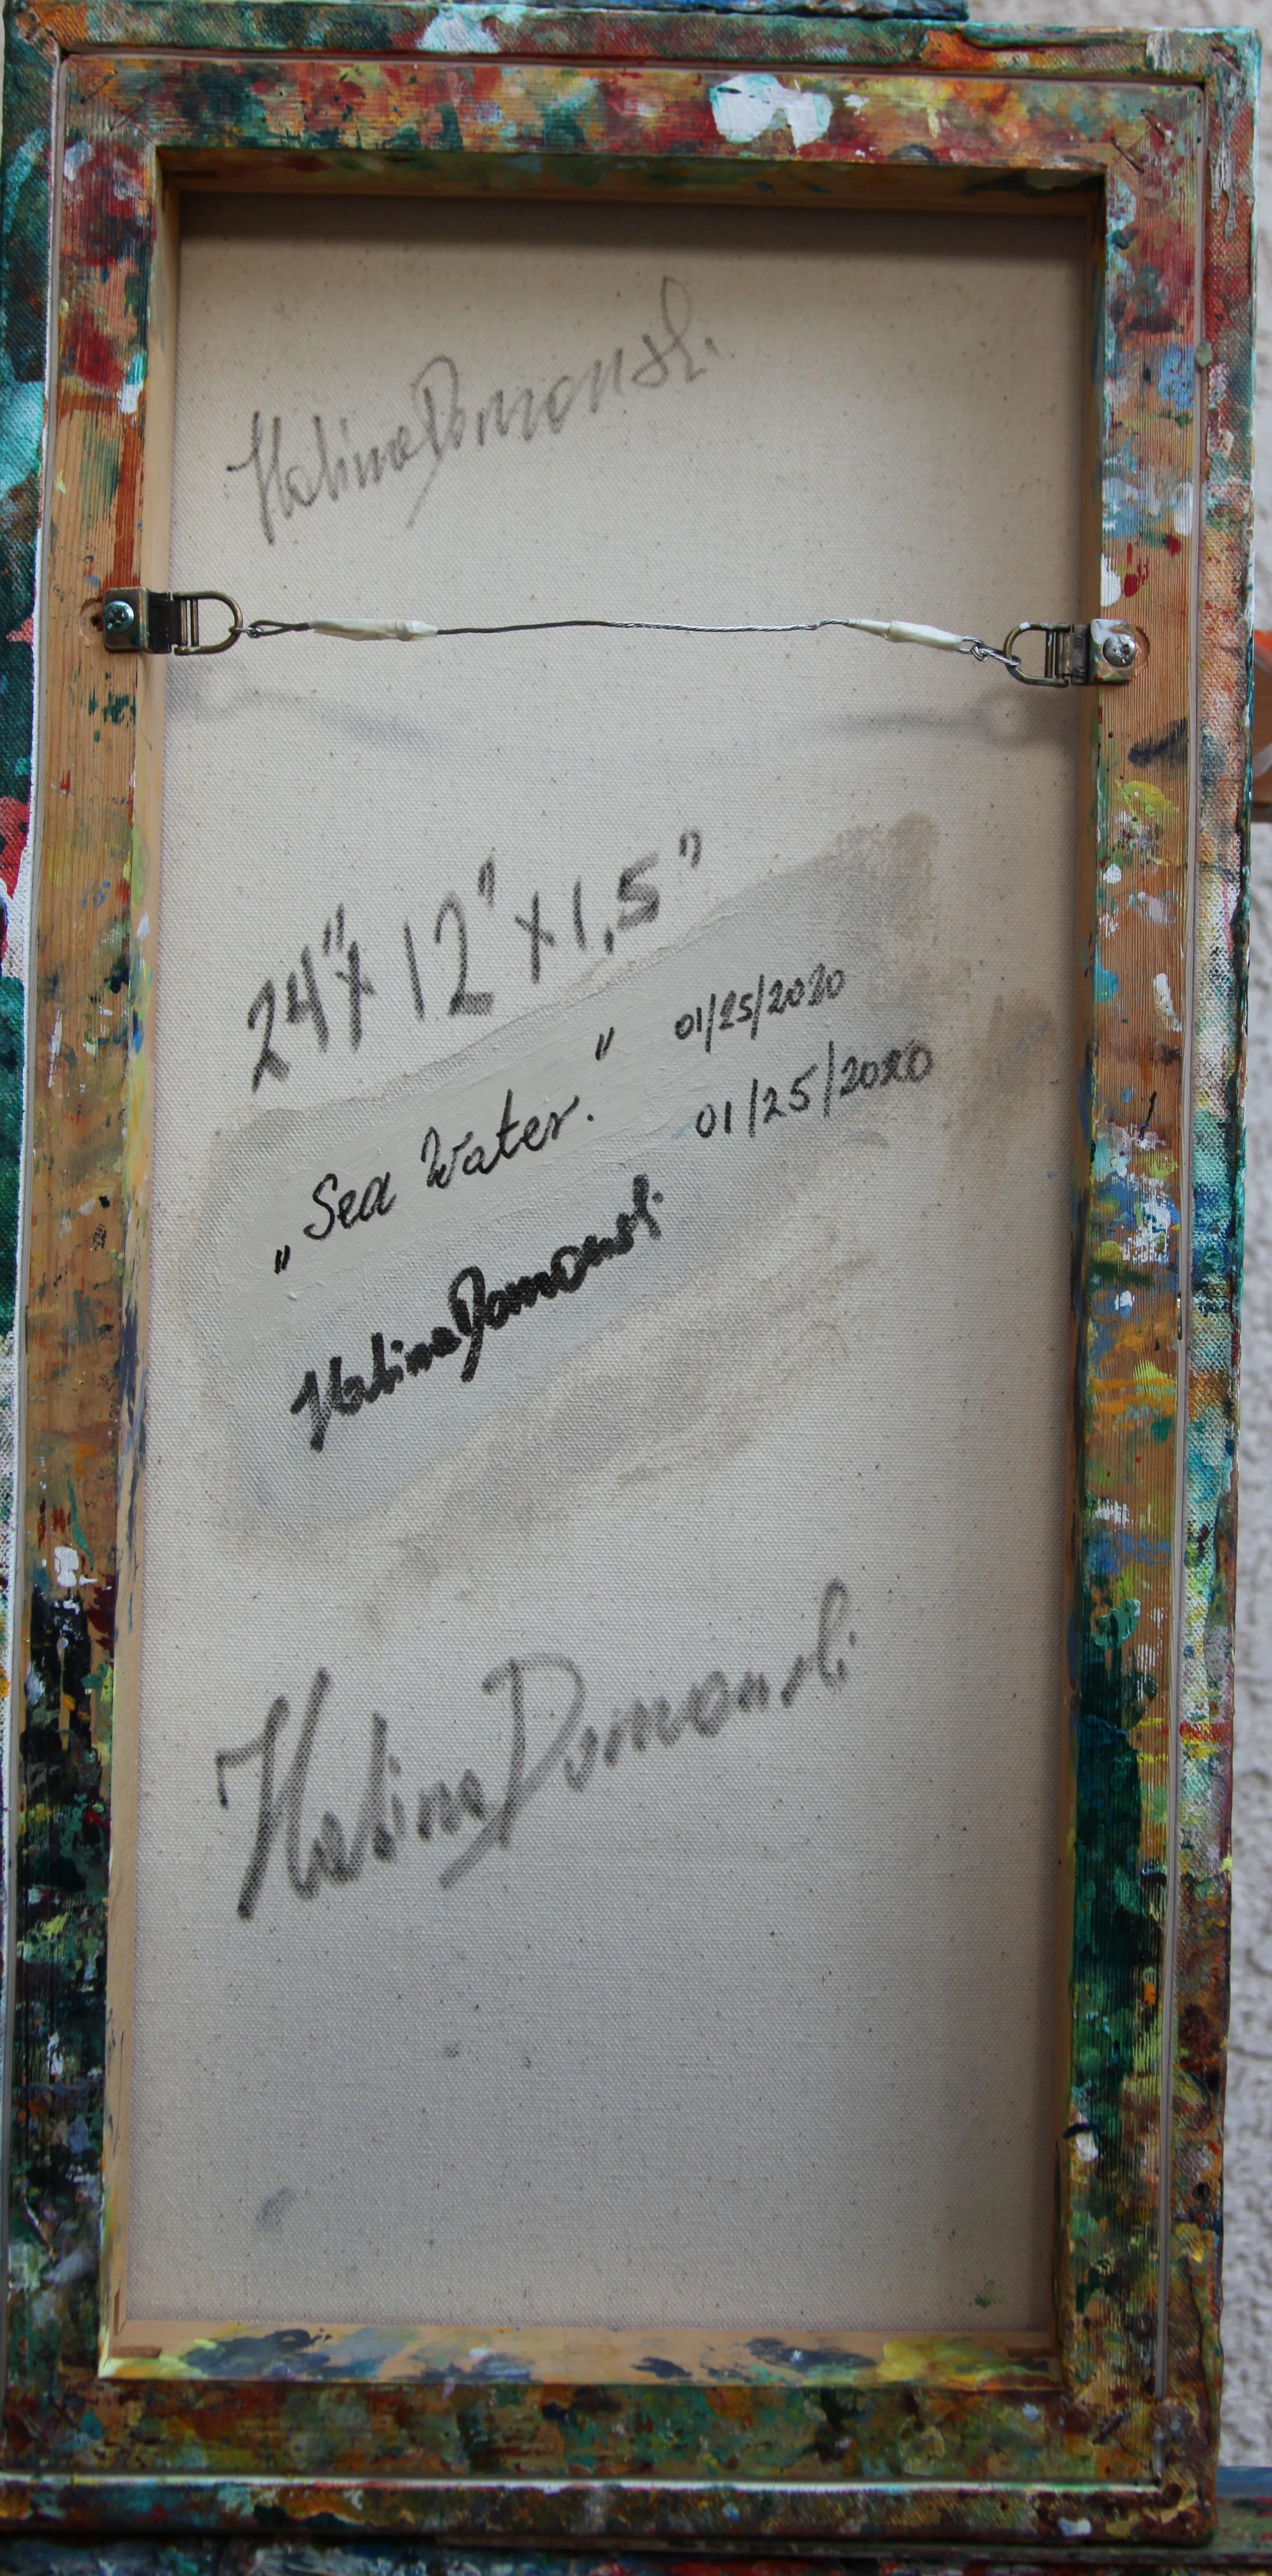 Halina Domanski
24" x 12" x 1,5"
"Sea Water." 01/25/2020
01/25/2020
Halina Domanski
Halina Domanski